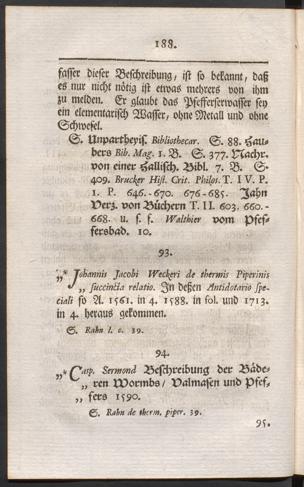 188.
fasser dieser Beschreibung, ist so bekannt, daß
es nur nicht nötig ist etwas mehrers von ihm
zu melden. Er glaubt das Pfefferserwasser sey
ein elementarisch Wasser, ohne Metall und ohne
Schwefel.
S. Unpartheyis. Bibliothecar. S. 88. Hau-
bers Bib. Mag. 1. B. S. 377. Nachr.
von einer Hallisch. Bibl. 7. B. S.
409. Brucker Hist. Crit. Philos. T. IV. P.
1. P. 646.-670. 676-685. Jahn
Verz. von Büchern T. II. 603. 660.-
668. u. s. f. Walthier vom Pfef-
fersbad. 10.
93.
„* Johannis Jacobi Weckeri de thermis Piperinis
„ succincta relatio. In deßen Antidotario spe-
ciali so A. 1561. in 4. 1588. in fol. und 1713.
in 4. heraus gekommen.
S. Rahn l. c. 19.
94.
„* Casp. Sermond Beschreibung der Bäde-
„ ren Wormbs, Valmasen und Pfef-
„ fers 1590.
S. Rahn de therm. piper. 39.
95.